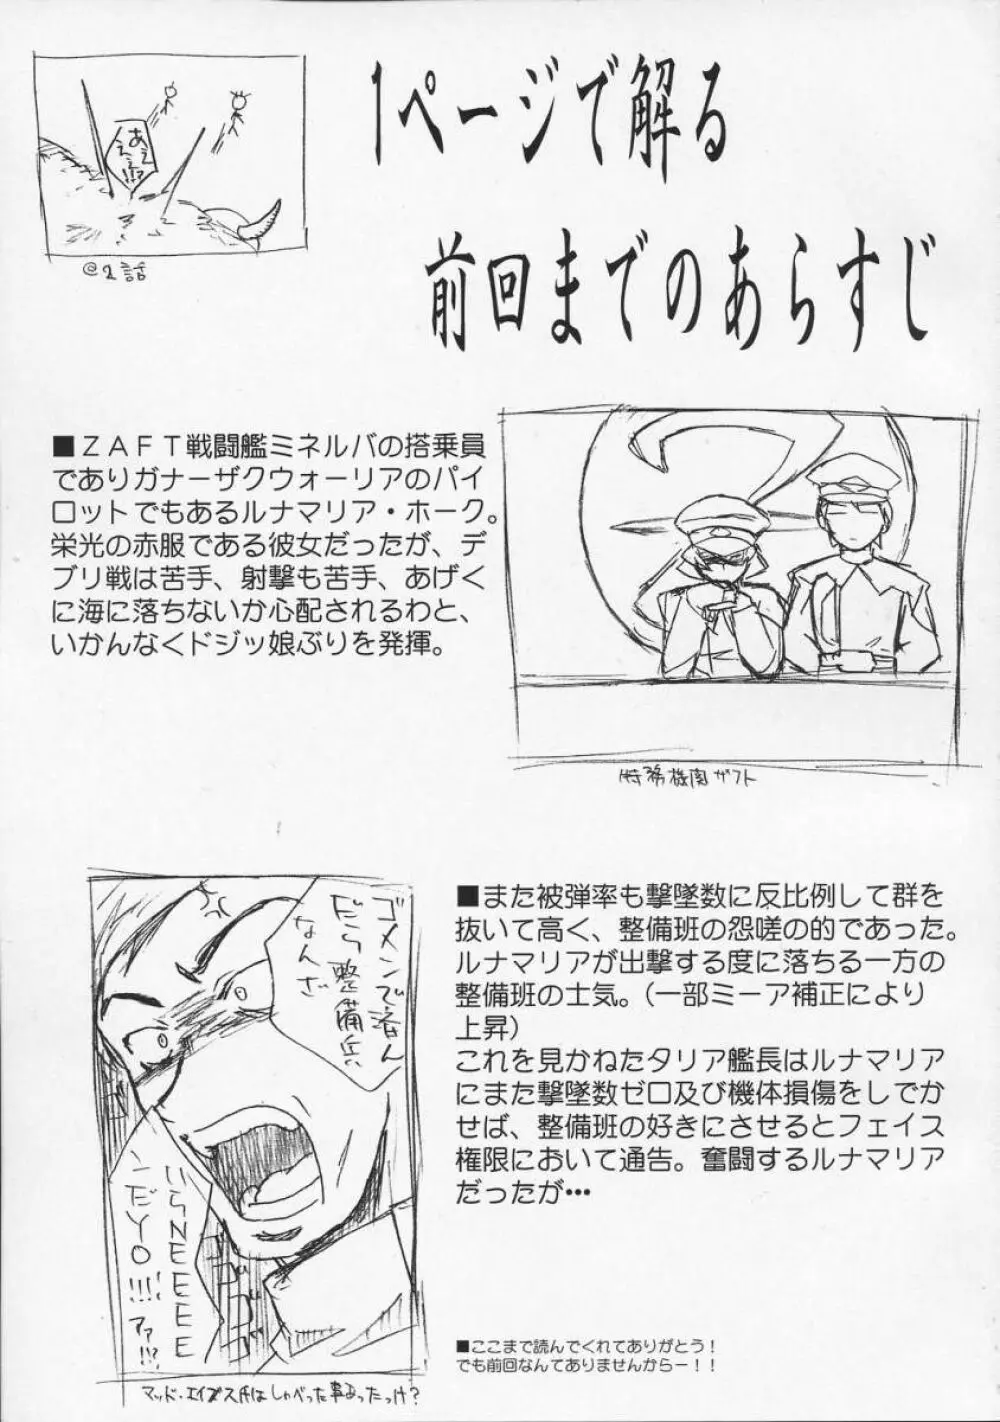 1ページで解る
前回までのあらすじ
@2話
■ZAFT戦闘艦ミネルバの搭乗員
でありガナーザクウォーリアのパイ
ロットでもあるルナマリア・ホーク。
栄光の赤服である彼女だったが、デ
ブリ戦は苦手、射撃も苦手、あげく
に海に落ちないか心配されるわと、
いかんなくドジッ娘ぶりを発揮。
特務機関ザフト
■また被弾率も撃墜数に反比例して群を
抜いて高く、整備班の怨嗟の的であった。
ルナマリアが出撃する度に落ちる一方の
整備班の士気。(一部ミーア補正により
上昇)
これを見かねたタリア艦長はルナマリア
にまた撃墜数ゼロ及び機体損傷をしでか
せば、整備班の好きにさせるとフェイス
権限において通告。奮闘するルナマリア
だったが…
ゴメンで済ん
だら整備兵
なんざ
いらNEEEE
ンだYO!!!!ファ!?
マッド・エイブス氏はしゃべった事あったっけ?
■ここまで読んでくれてありがとう!
でも前回なんてありませんからー!!